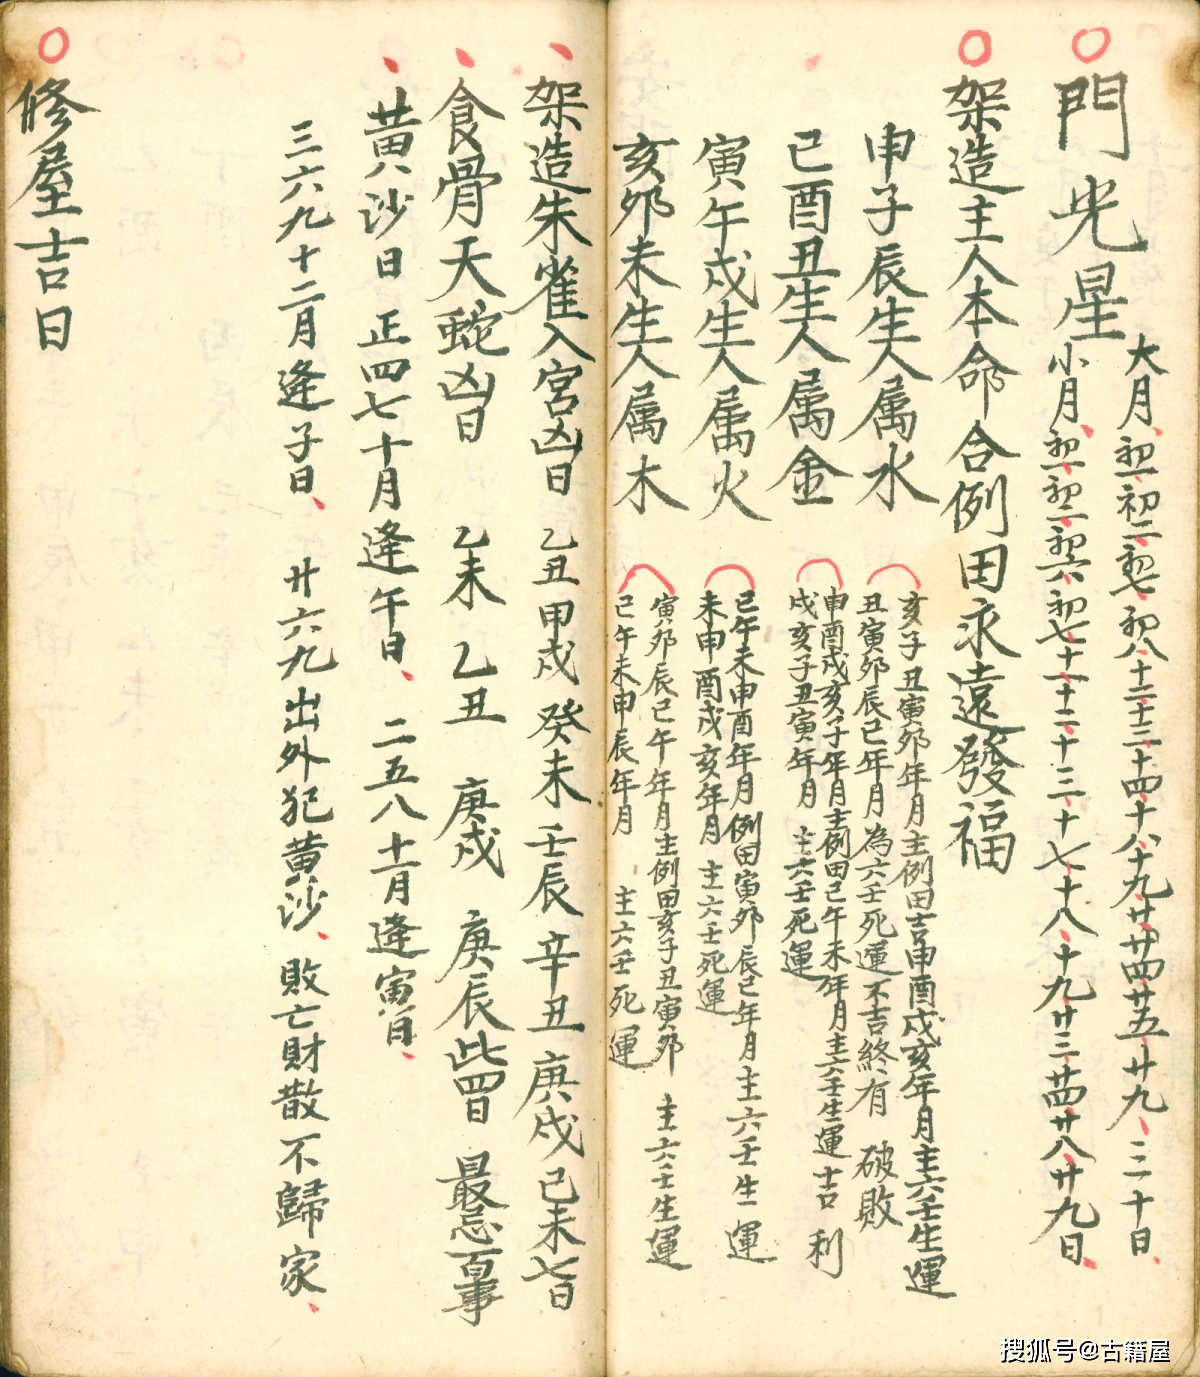 門光星
大月初一初二初七初八十二十三十四十八十九廿廿四廿五廿九三十日
小月初一初二初六初七十一十二十三十七十八十九廿三廿四廿八廿九日
架造主人本命合例田永遠發福
申子辰生人属水
亥子丑寅卯年月主例田吉申酉戌亥年月主六壬生運
丑寅卯辰巳年月為六壬死運不吉終有破敗
巳酉丑生人属金
申酉戌亥子年月主例田巳午未年月主六壬生運吉利
戌亥子丑寅年月主六壬死運
寅午戌生人属火
巳午未申酉年月例田寅卯辰巳年月主六壬生運
未申酉戌亥年月主六壬死運
亥卯未生人属木
寅卯辰巳午年月主例田亥子丑寅卯主六壬生運
巳午未申辰年月主六壬死運
架造朱雀入宮凶日乙丑甲戌癸未壬辰辛丑庚戌己未七日
食骨天蛇凶日乙未乙丑庚戌庚辰此四日最忌百事
黄沙日正四七十月逢午日二五八十一月逢寅日
三六九十二月逢子日廿六九出外犯黄沙敗亡財散不歸家
修屋吉日
搜狐号@古籍屋